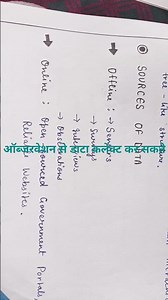 tree-like structure.
SOURCES OF DATA
Offline : → Sensors
→ Surveys
→ Interviews
→ Observations
ऑब्जरवेशन से डाटा कलेक्ट कर सकते
→ Online : Open-sourced Government Portals,
Reliable Websites.